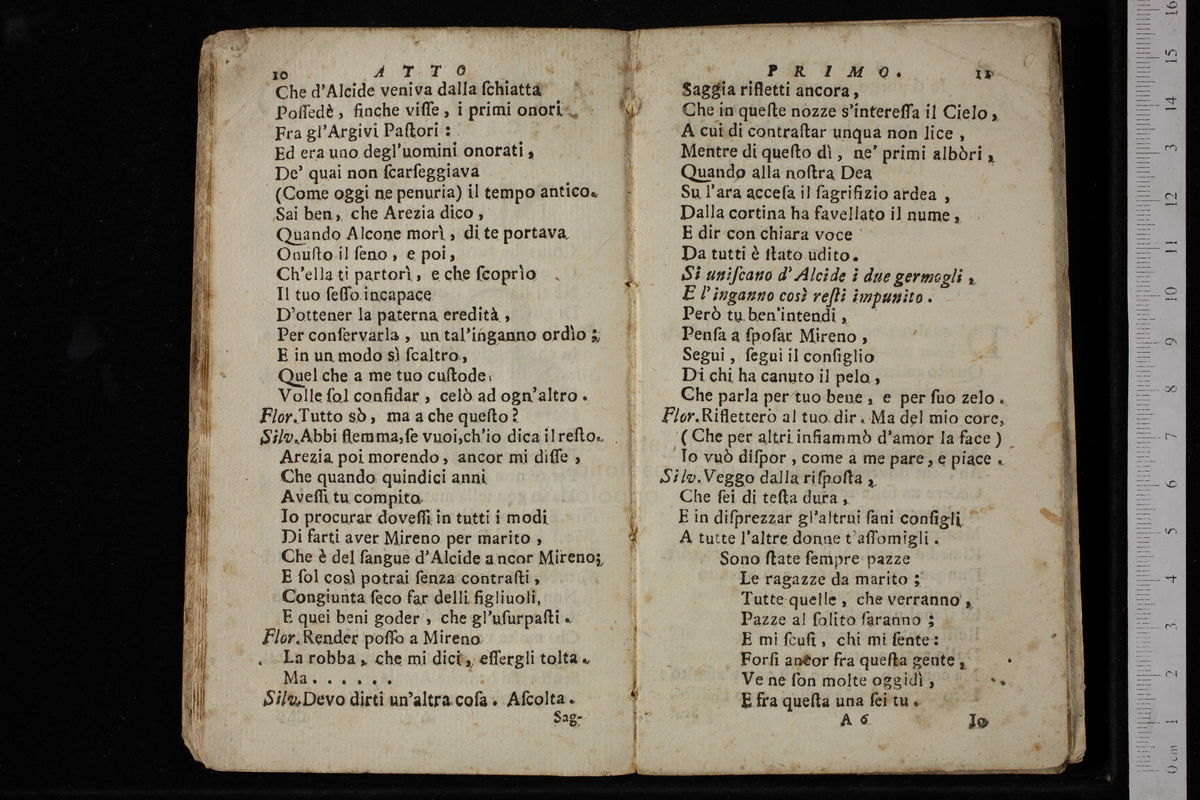 10 ATTO
Che d'Alcide veniva dalla ſchiatta
Poſſedè, finche viſſe, i primi onori
Fra gl'Argivi Paſtori:
Ed era uno degl'uomini onorati,
De' quai non ſcarſeggiava
(Come oggi ne penuria) il tempo antico.
Sai ben, che Arezia dico,
Quando Alcone morì, di te portava
Onuſto il ſeno, e poi,
Ch'ella ti partorì, e che ſcoprìo
Il tuo ſeſſo incapace
D'ottener la paterna eredità,
Per conſervarla, un tal'inganno ordìo;
E in un modo sì ſcaltro,
Quel che a me tuo cuſtode
Volle ſol confidar, celò ad ogn'altro.
Flor. Tutto sò, ma a che queſto?
Silv. Abbi flemma, ſe vuoi, ch'io dica il reſto.
Arezia poi morendo, ancor mi diſſe,
Che quando quindici anni
Aveſſi tu compito
Io procurar doveſſi in tutti i modi
Di farti aver Mireno per marito,
Che è del ſangue d'Alcide ancor Mireno;
E ſol così potrai ſenza contraſti,
Congiunta ſeco far delli figliuoli,
E quei beni goder, che gl'uſurpaſti.
Flor. Render poſſo a Mireno
La robba, che mi dici, eſſergli tolta.
Ma......
Silv. Devo dirti un'altra coſa. Aſcolta.
Sag-
PRIMO. 11
Saggia rifletti ancora,
Che in queſte nozze s'intereſſa il Cielo,
A cui di contraſtar unqua non lice,
Mentre di queſto dì, ne' primi albòri,
Quando alla noſtra Dea
Su l'ara acceſa il ſagrifizio ardea,
Dalla cortina ha favellato il nume,
E dir con chiara voce
Da tutti è ſtato udito.
Si uniſcano d'Alcide i due germogli,
E l'inganno così reſti impunito.
Però tu ben'intendi,
Penſa a ſpoſar Mireno,
Segui, ſegui il conſiglio
Di chi ha canuto il pelo,
Che parla per tuo bene, e per ſuo zelo.
Flor. Rifletterò al tuo dir. Ma del mio core,
(Che per altri infiammò d'amor la face)
Io vuò diſpor, come a me pare, e piace.
Silv. Veggo dalla riſpoſta,
Che ſei di teſta dura,
E in diſprezzar gl'altrui ſani conſigli
A tutte l'altre donne t'aſſomigli.
Sono ſtate ſempre pazze
Le ragazze da marito;
Tutte quelle, che verranno,
Pazze al ſolito ſaranno;
E mi ſcuſi, chi mi ſente:
Forſi ancor fra queſta gente,
Ve ne ſon molte oggidì,
E fra queſta una ſei tu.
A 6 Io
0 cm 1 2 3 4 5 6 7 8 9 10 11 12 3 14 15 16